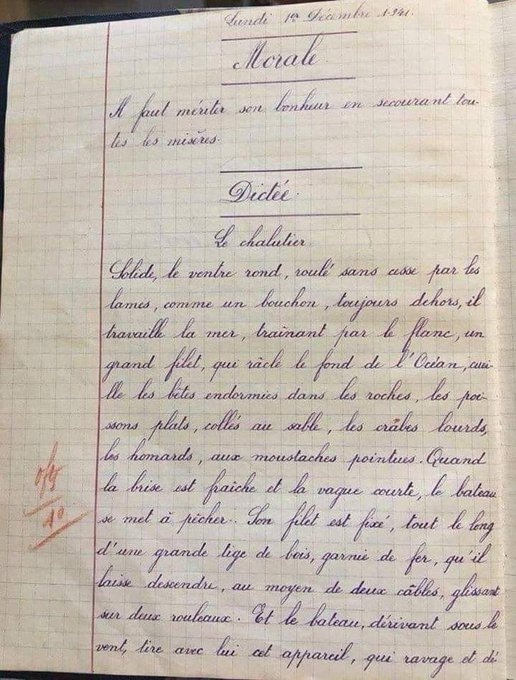 Lundi 1er Décembre 1941.
Morale
Il faut mériter son bonheur en secourant tou-
tes les misères.
Dictée.
Le chalutier
Solide, le ventre rond, roulé sans cesse par les
lames, comme un bouchon, toujours dehors, il
travaille la mer, traînant par le flanc, un
grand filet, qui râcle le fond de l'Océan, cueil-
lle les bêtes endormies dans les roches, les poi-
ssons plats, collés au sable, les crâbes lourds,
les homards, aux moustaches pointues. Quand
la brise est fraîche et la vague courte, le bateau
se met à pêcher. Son filet est fixé, tout le long
d'une grande tige de bois, garnie de fer, qu'il
laisse descendre, au moyen de deux câbles, glissant
sur deux rouleaux. Et le bateau, dérivant sous le
vent, tire avec lui cet appareil, qui ravage et dé
10